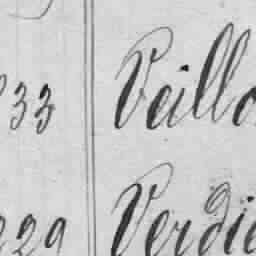 33 Veillo
229 Verdie